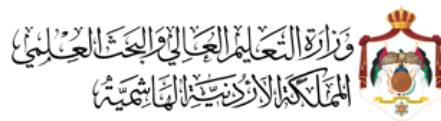 وزارة التعليم العالي والبحث العلمي
المملكة الأردنية الهاشمية